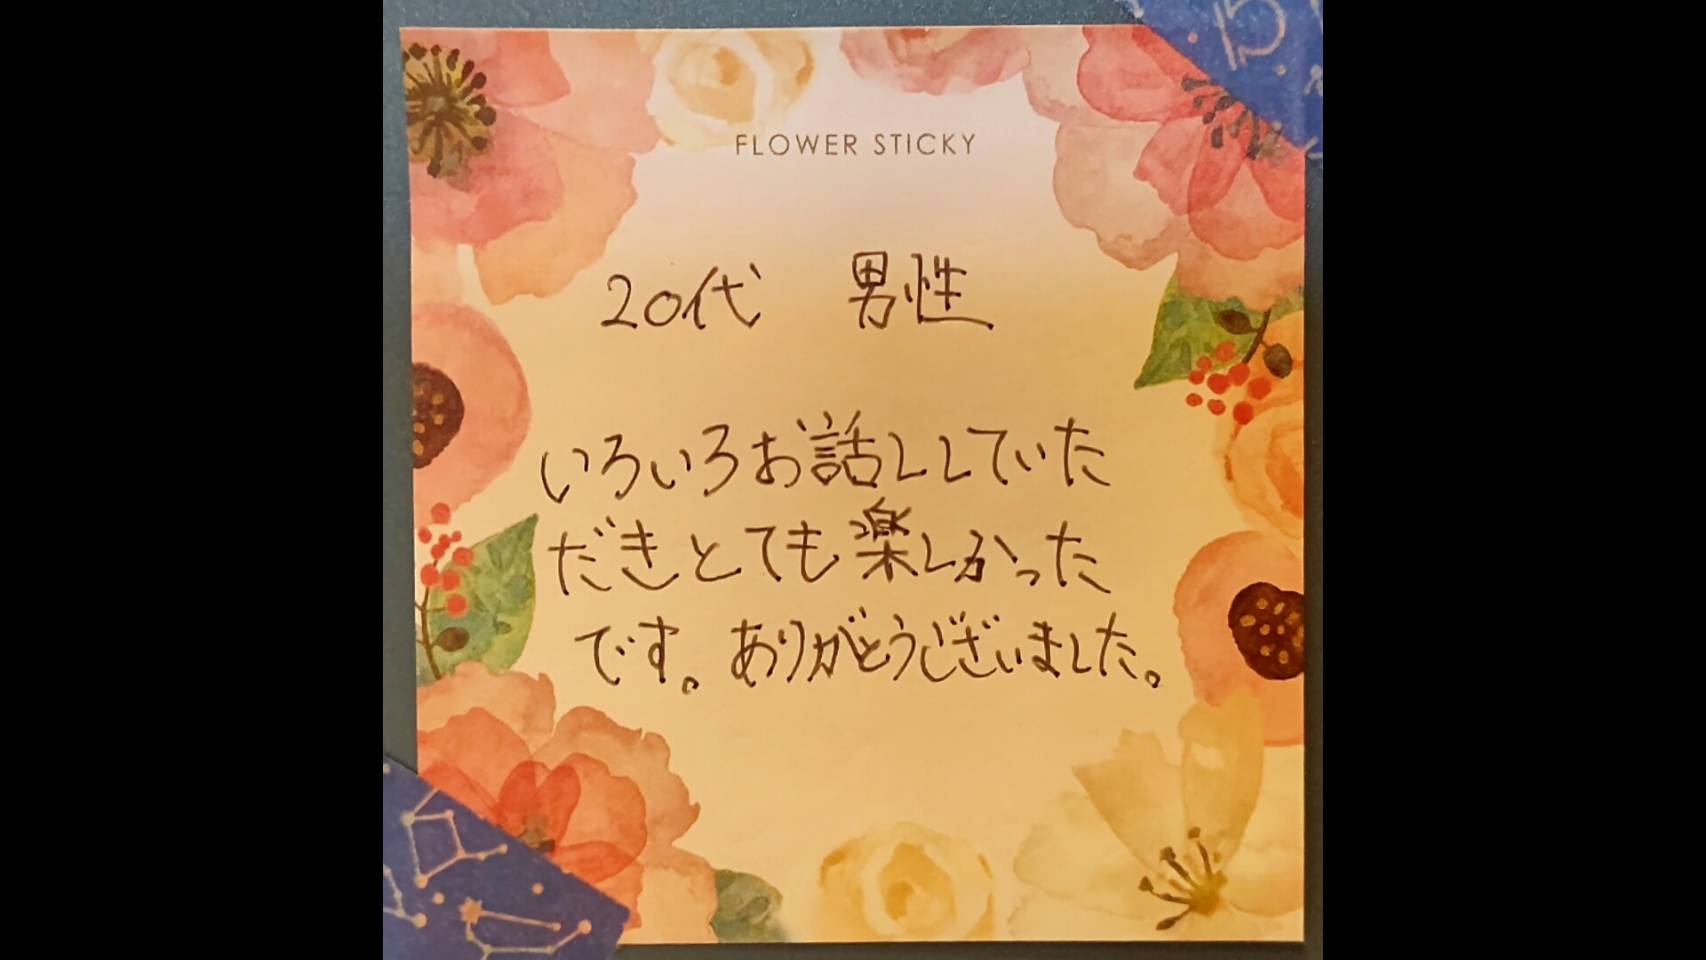 FLOWER STICKY
20代 男性
いろいろお話ししていた
だきとても楽しかった
です。ありがとうございました。